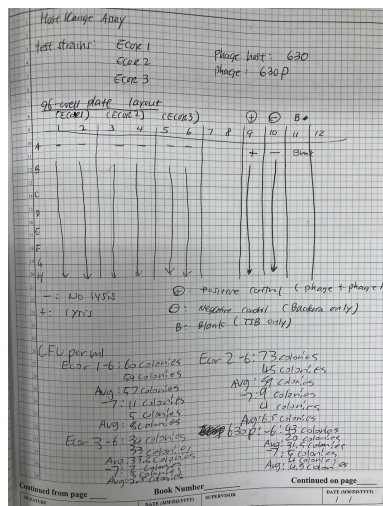 Host Range Assay
test strains: Ecor 1
Phage host: 630
Ecor 2
Phage: 630P
Ecor 3
96-well plate layout
(Ecor1) (Ecor2) (Ecor3) ⊕ ⊖ B
1 2 3 4 5 6 7 8 9 10 11 12
A - - - - - - + - Blank
B
C
D
E
F
G
H
- : No lysis
+ : lysis
⊕ : Positive control (phage + phage h
⊖ : Negative control (Bacteria only)
B: Blank (TSB only)
CFU per ml
Ecor 1 -6: 60 colonies
54 colonies
Avg: 57 colonies
-7: 11 colonies
5 colonies
Avg: 8 colonies
Ecor 3 -6: 34 colonies
33 colonies
Avg: 33.5 colonies
-7: 2 colonies
5 colonies
Avg: 3.5 colonies
Ecor 2 -6: 73 colonies
45 colonies
Avg: 59 colonies
-7: 9 colonies
4 colonies
Avg: 6.5 colonies
630P: -6: 43 colonies
20 colonies
Avg: 31.5 colonies
-7: 5 colonies
4 colonies
Avg: 4.5 colonies
Continued from page
Book Number
Continued on page
SIGNATURE
DATE (MM/DD/YYYY)
SUPERVISOR
DATE (MM/DD/YYYY)
/ /